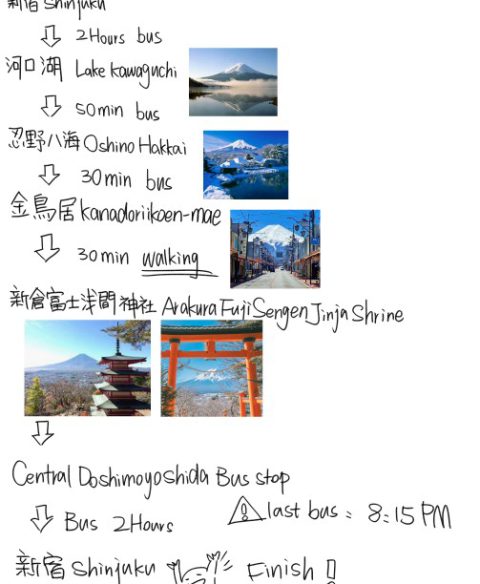 新宿 Shinjuku
2Hours bus
河口湖 Lake Kawaguchi
50min bus
忍野八海 Oshino Hakkai
30min bus
金鳥居 kanadoriikoen-mae
30min walking
新倉富士浅間神社 Arakura Fuji Sengen Jinja Shrine
Central Doshimoyoshida Bus stop
Bus 2Hours
last bus : 8:15 PM
新宿 Shinjuku Finish!